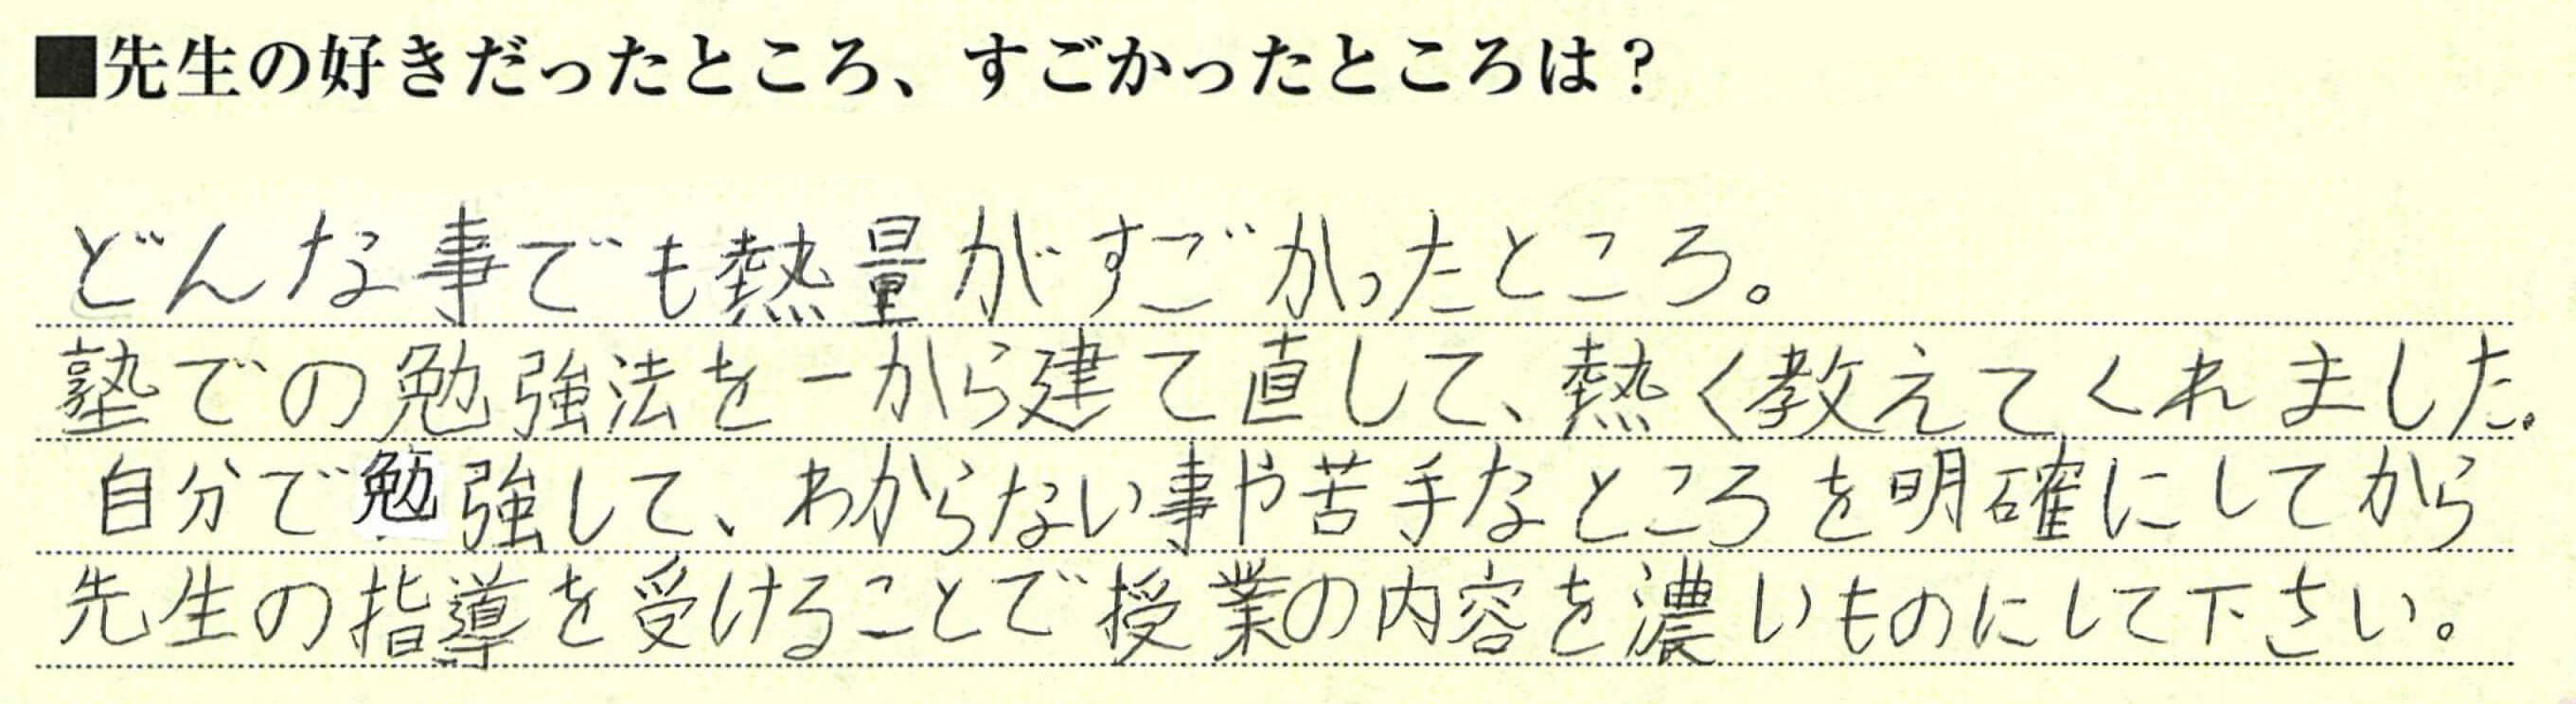 ■先生の好きだったところ、すごかったところは？
どんな事でも熱量がすごかったところ。
塾での勉強法を一から建て直して、熱く教えてくれました。
自分で勉強して、わからない事や苦手なところを明確にしてから
先生の指導を受けることで授業の内容を濃いものにして下さい。